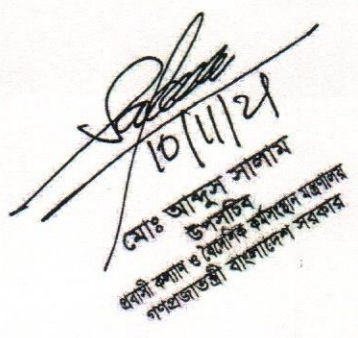 10/11/21
মোঃ আব্দুস সালাম
উপসচিব
প্রবাসী কল্যাণ ও বৈদেশিক কর্মসংস্থান মন্ত্রণালয়
গণপ্রজাতন্ত্রী বাংলাদেশ সরকার